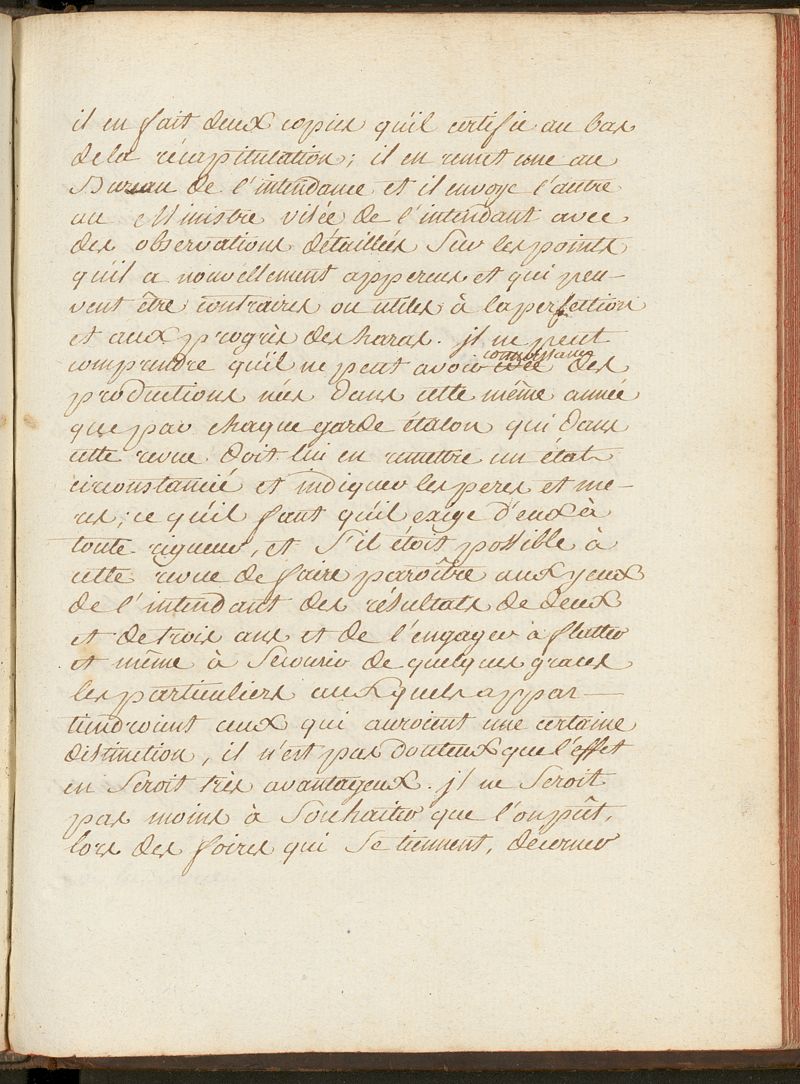 il en fait deux copies qu'il certifie au bas
de la récapitulation; il en remet une au
Bureau de l'intendance et il envoye l'autre
au Ministre visée de l'intendant avec
des observations détaillées Sur les points
qu'il a nouvellement apperçus et qui peu-
vent être contraires ou utiles à la perfection
et aux progrès des haras. jl ne peut
connoissance
comprendre qu'il ne peut avoir idée des
productions nées dans cette même année
que par chaque garde étalon qui dans
cette revue doit lui en remettre un état
circonstancié et indiquer les peres et me-
res; ce qu'il faut qu'il exige d'eux à
toute rigueur, et S'il étoit possible à
cette revue de faire paroître aux yeux
de l'intendant des résultats de deux
et de trois ans et de l'engager à flatter
et même à Secourir de quelques graces
les particuliers auxquels appar-
tiendroient ceux qui auroient une certaine
distinction, il n'est pas douteux que l'effet
en Seroit très avantageux. jl ne Seroit
pas moins à Souhaiter que l'on pût,
lors des foires qui Se tiennent, décerner